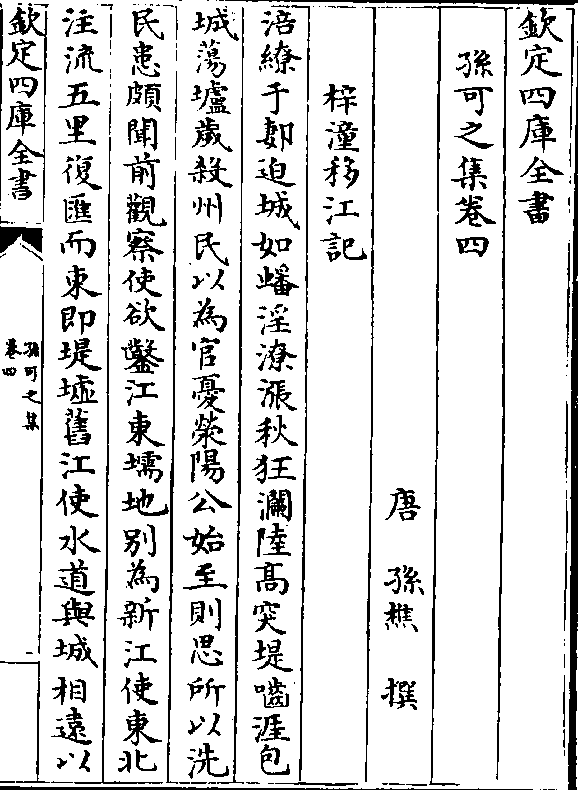 欽定四庫全書
孫可之集卷四
唐 孫樵 撰
梓潼移江記
涪繚于郪迫城如蟠淫潦漲秋狂瀾陸高突堤嚙涯包
城蕩墟歲殺州民以為官憂滎陽公始至則思所以洗
民患頗聞前觀察使欲鑿江東壖地別為新江使東北
注流五里復匯而東即堤墟舊江使水道與城相遠以
欽定四庫全書
孫可之集
卷四
一